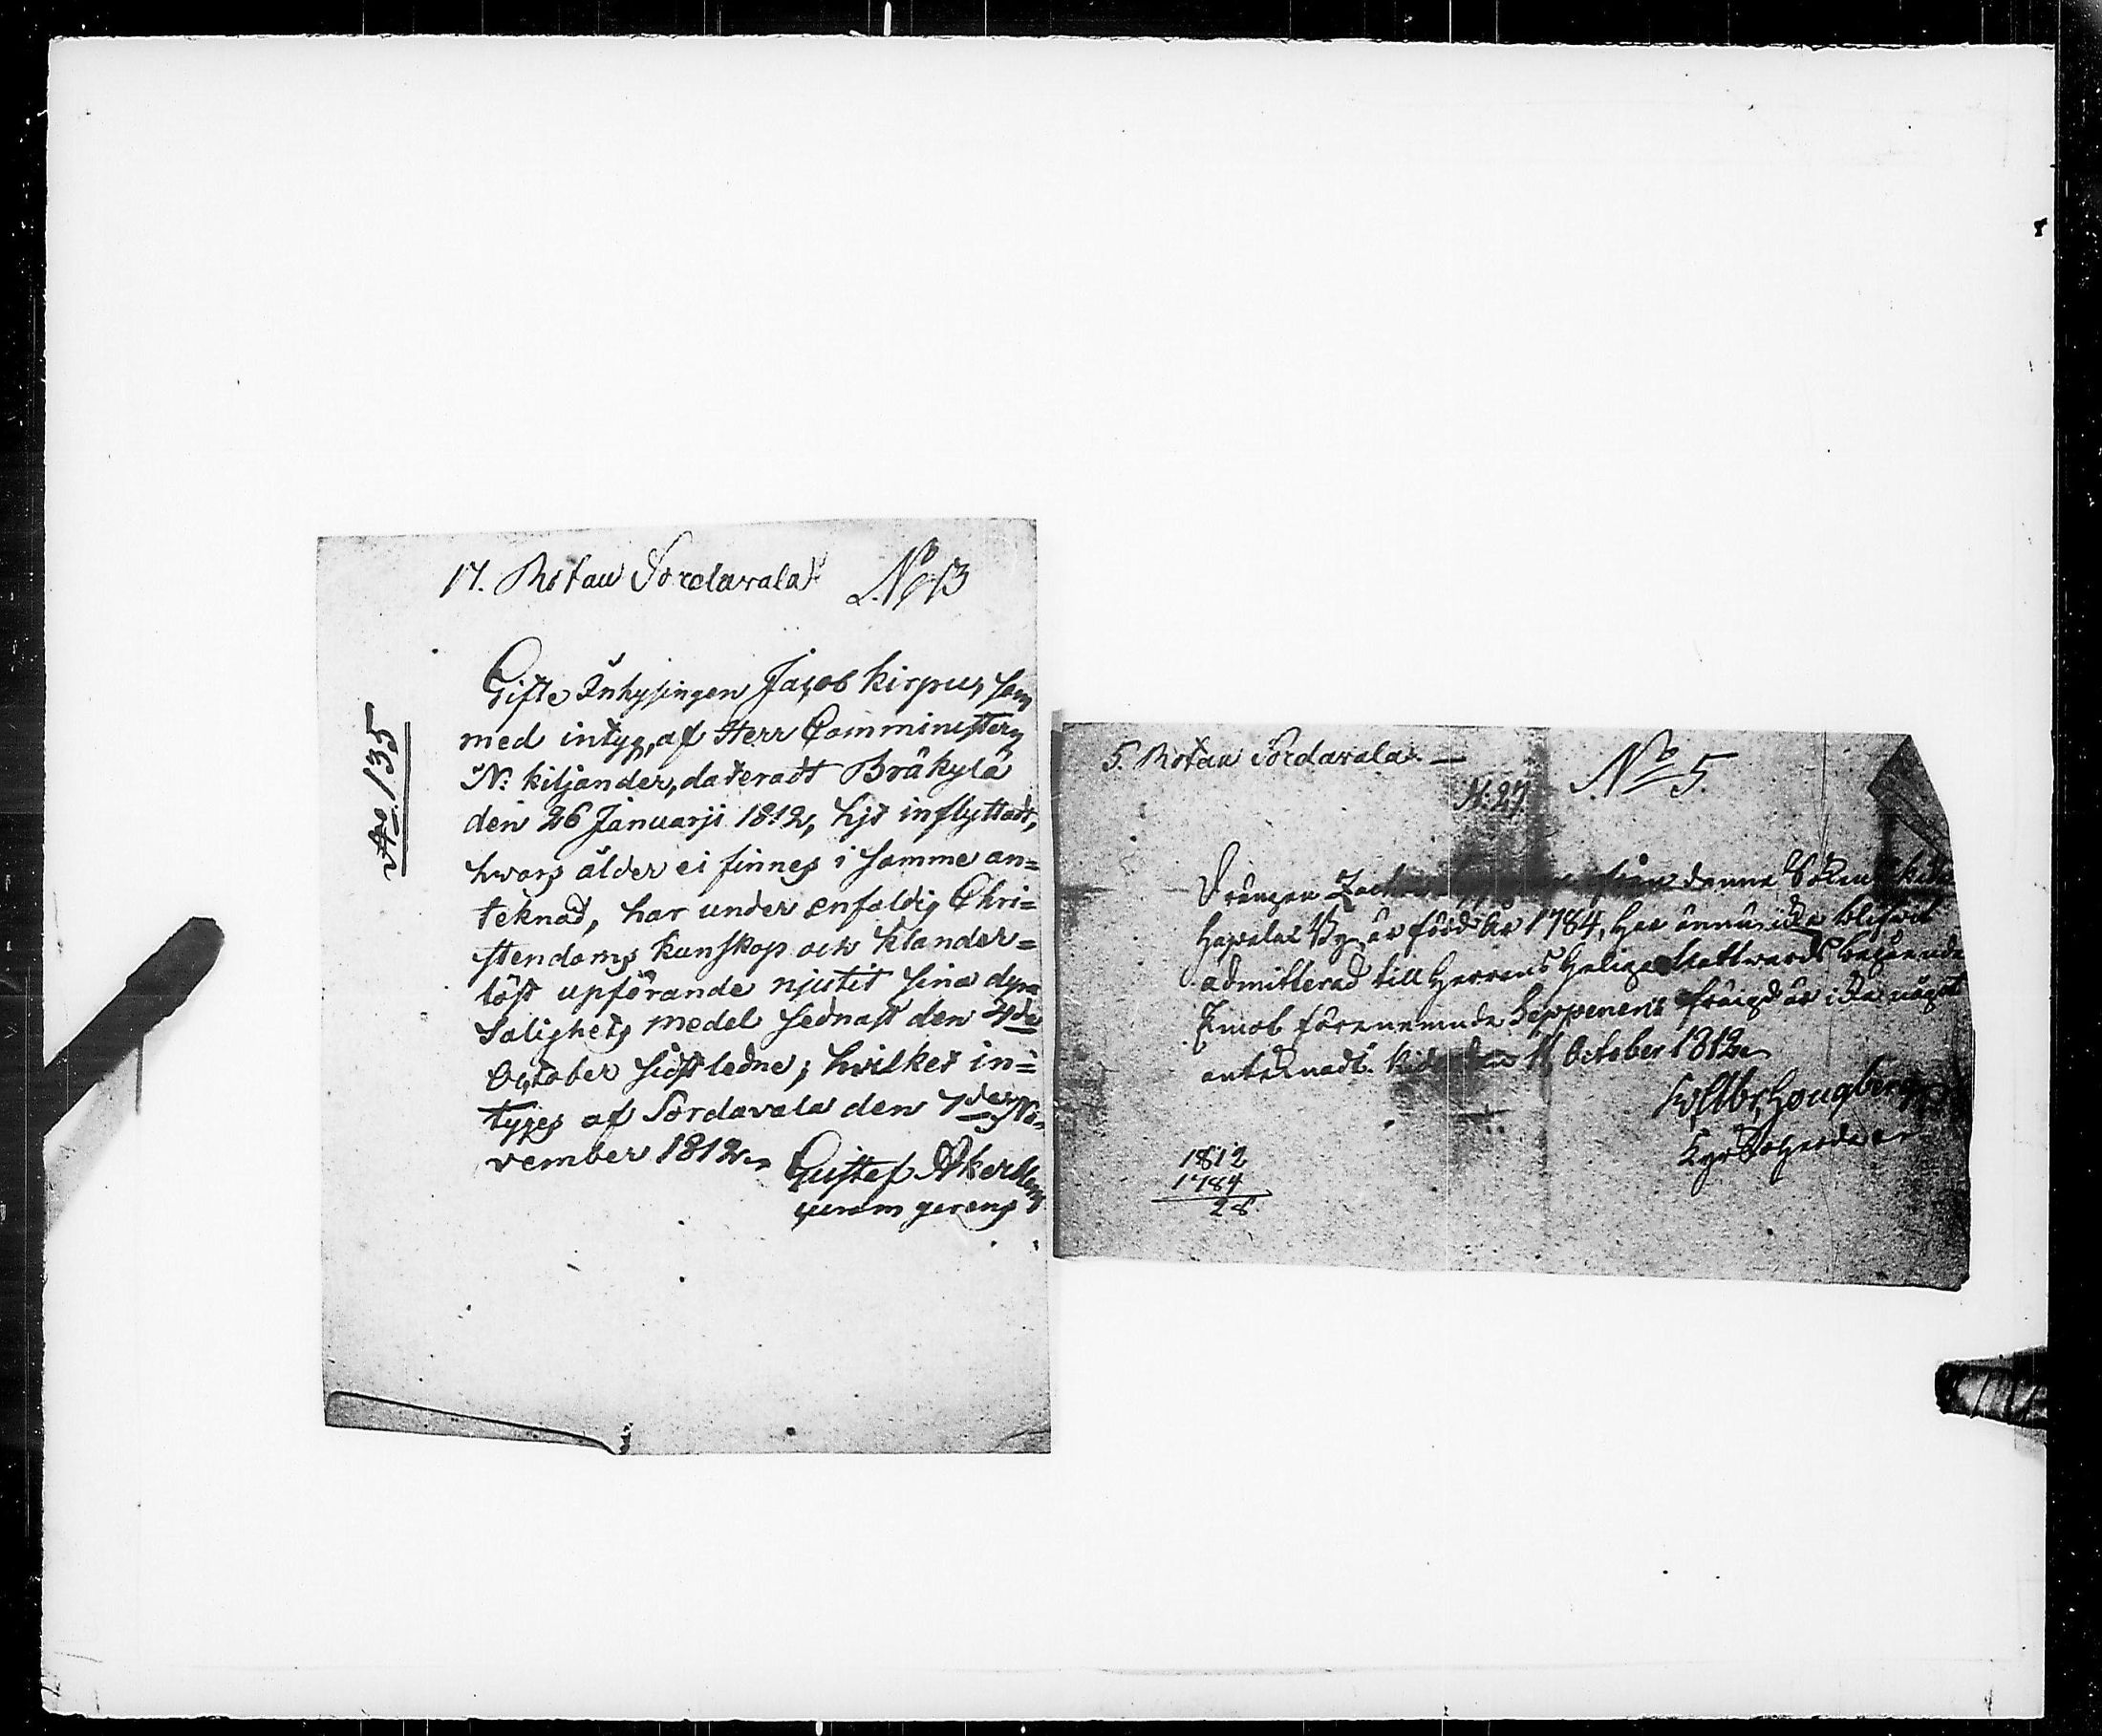 17. Rotan Sordavala
No 13
No. 135
Gifte Inhysingen Jacob Kirpu, som
med intyg, af Herr Comministern
N: Kiljander, dateradt Bräkylä
den 26 Januarji 1812, hjt inflyttadt,
hvars ålder ei finnes i samme an=
teknad, har under enfaldig Chri=
stendoms kunskap och klander=
löst upförande njutit sina dyra
Salighets medel sednast den 4de
October sidstledne; hvilket in=
tyges af Sordavala den 7de No=
vember 1812.
Gustef Akerblom
curam gerens
5. Rotan Sordavala.
No 5.
N. 27
Drängen denna Sokens
By är född År 1784, har ännu icke blifvit
admitterad till Herrens Heliga Nattvards begående
Emot förenemnde Seppenens frägd är icke något
anteknadt. den 11 October 1812
Hougberg
1812
1784
28